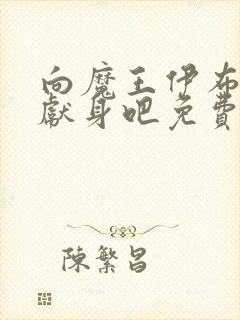 向魔王伊布
獻身吧免費
陳繁昌